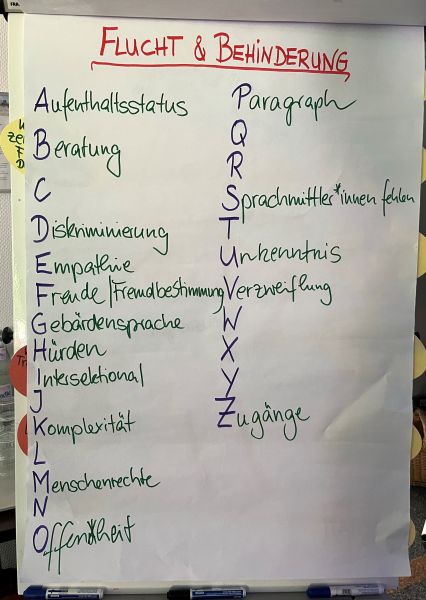 FLUCHT & BEHINDERUNG
Aufenthaltsstatus
Beratung
C
Diskriminierung
Empathie
Freude/Fremdbestimmung
Gebärdensprache
Hürden
Intersektional
J
Komplexität
L
Menschenrechte
N
Offen*heit
Paragraph
Q
R
Sprachmittler*innen fehlen
T
Unkenntnis
Verzweiflung
W
X
Y
Zugänge